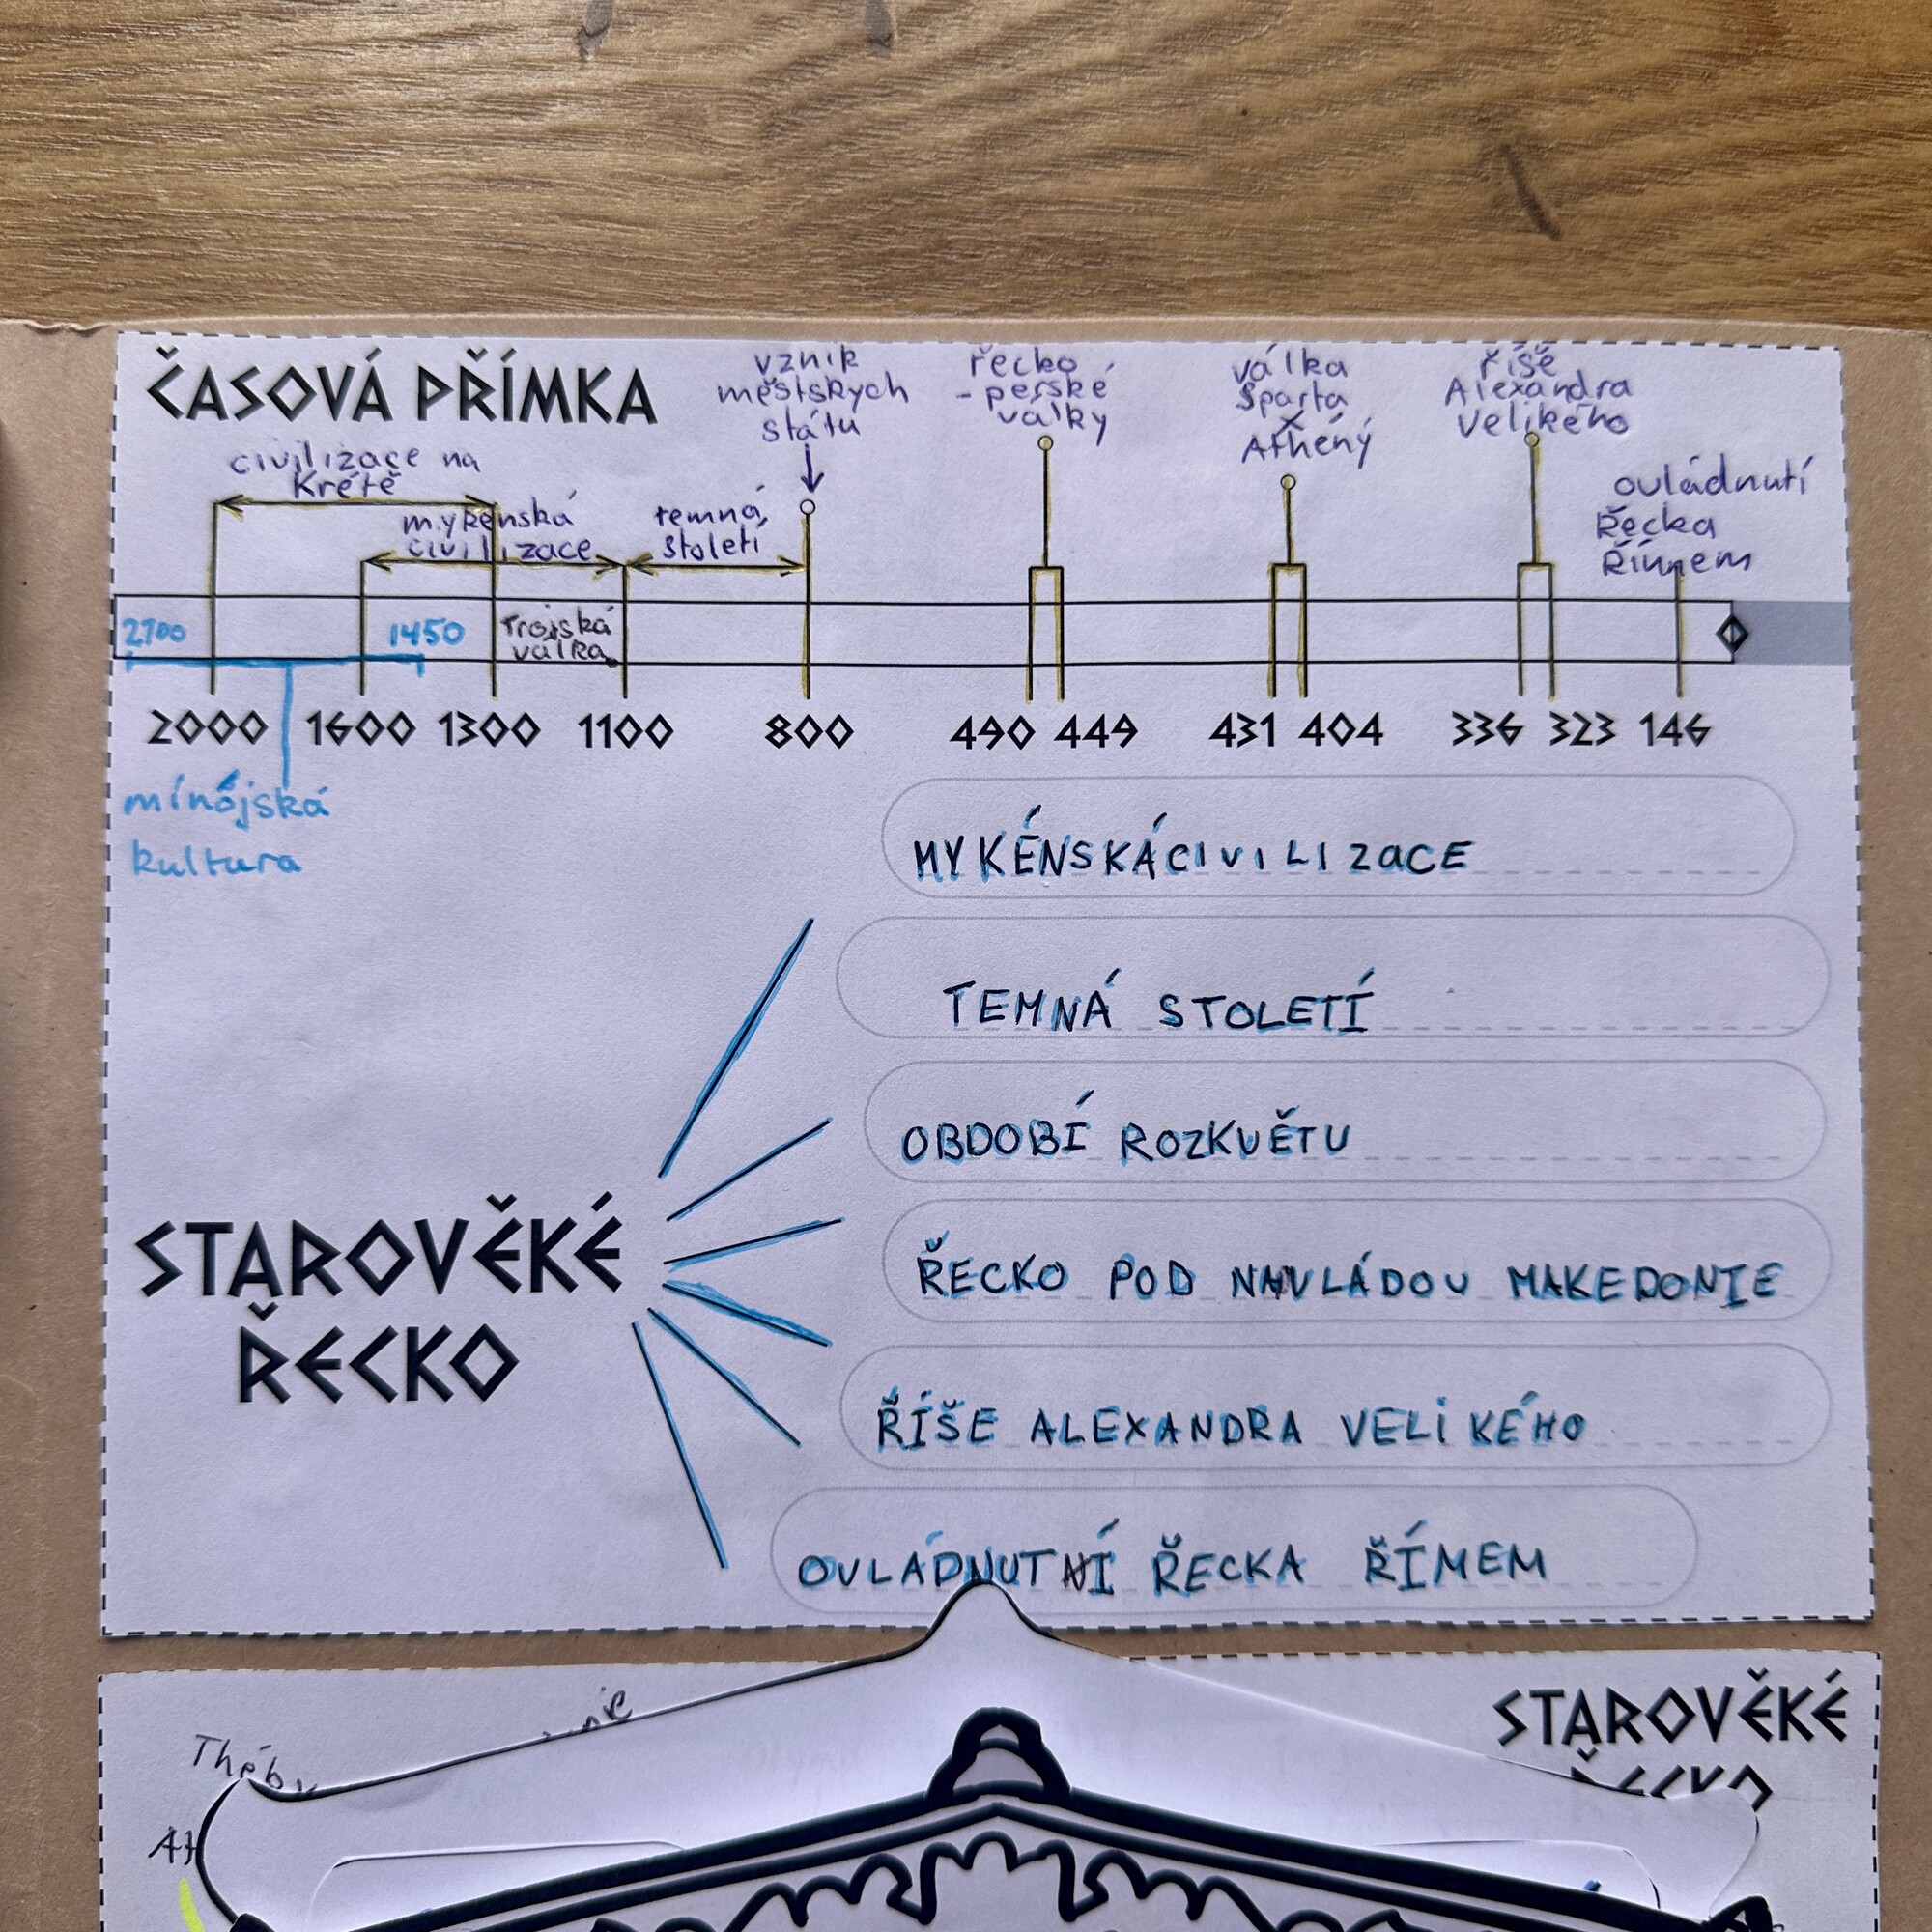 ČASOVÁ PŘÍMKA
civilizace na
Krétě
mykénská
civilizace
temná
století
vznik
městských
států
řecko
- perské
války
válka
Sparta
X
Athény
říše
Alexandra
Velikého
ovládnutí
Řecka
Římem
2700
1450
Trojská
válka
2000 1600 1300 1100 800 490 449 431 404 336 323 146
mínójská
kultura
MYKÉNSKÁ CIVILIZACE
TEMNÁ STOLETÍ
OBDOBÍ ROZKVĚTU
ŘECKO POD NAVLÁDOU MAKEDONIE
ŘÍŠE ALEXANDRA VELIKÉHO
OVLÁDNUTÍ ŘECKA ŘÍMEM
STAROVĚKÉ
ŘECKO
STAROVĚKÉ
ŘECKO
Théby